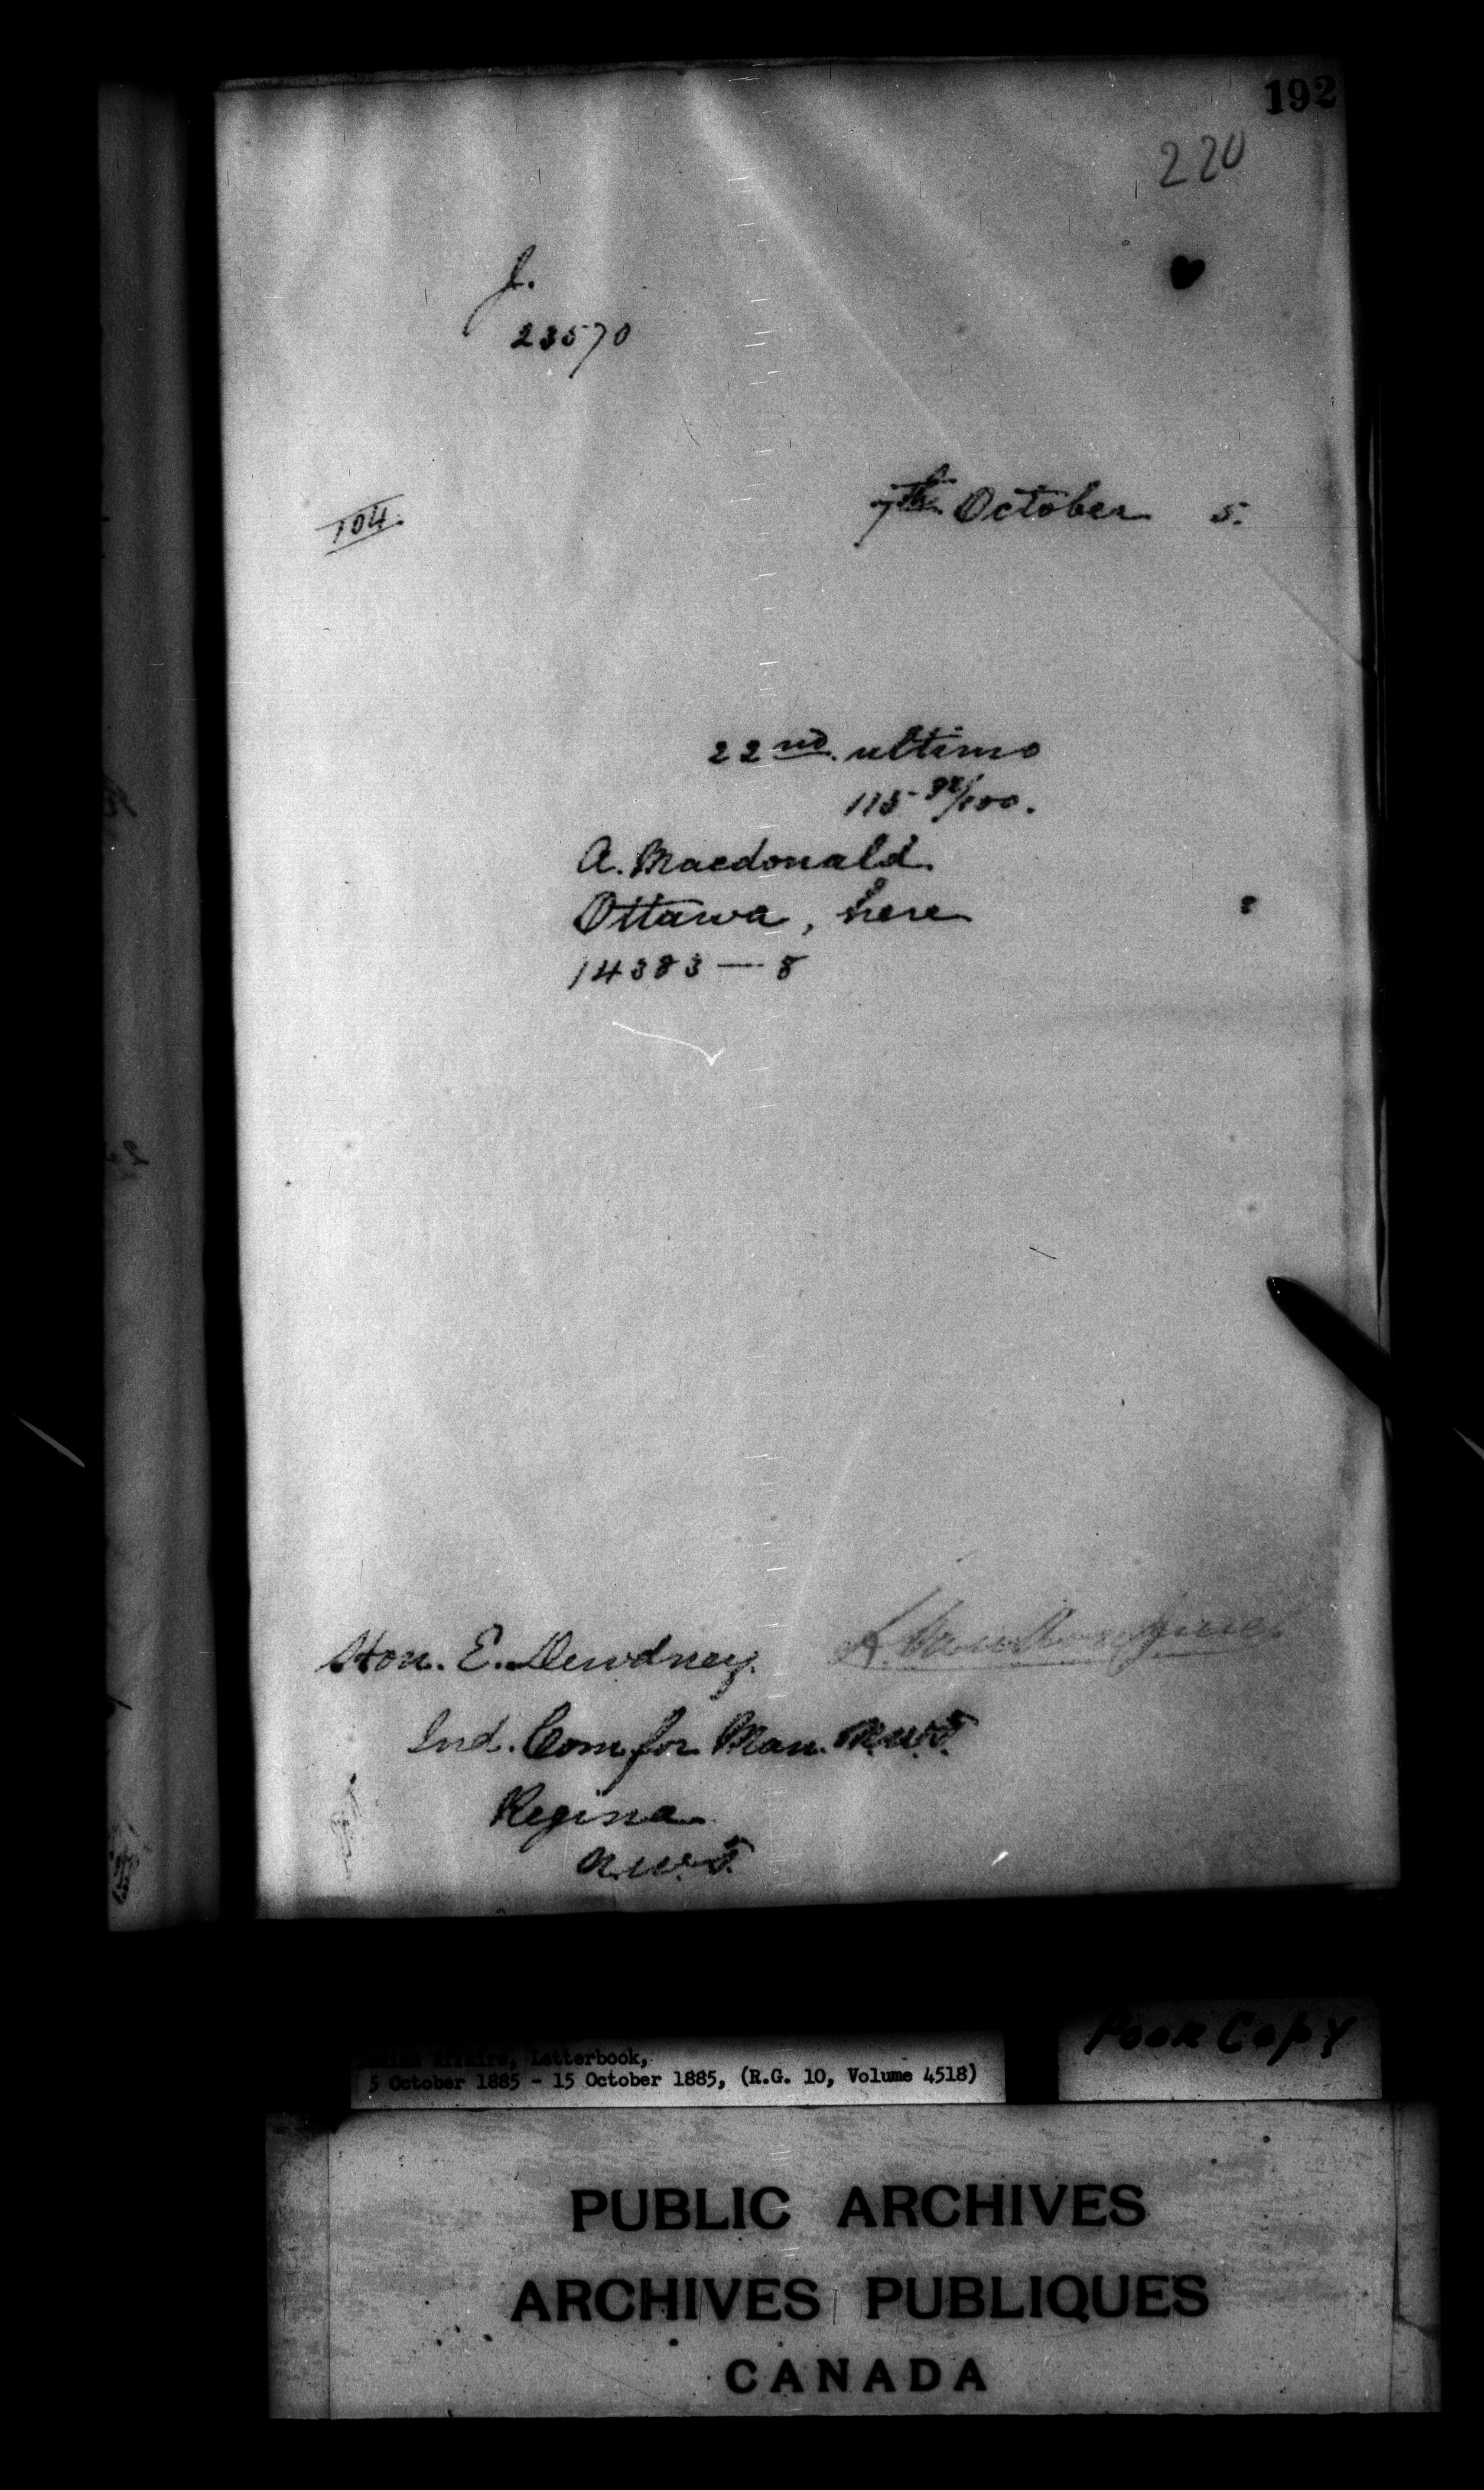 192
220
J.
23570
104.
7th October 5.
22nd. ultimo
115 /100.
A. Macdonald.
Ottawa, here
14383 — 8
Hon. E. Dewdney.
Ind. Com. for Man. N.W.T.
Regina
N.W.T.
Poor Copy
Indian Affairs, Letterbook,
5 October 1885 - 15 October 1885, (R.G. 10, Volume 4518)
PUBLIC ARCHIVES
ARCHIVES PUBLIQUES
CANADA